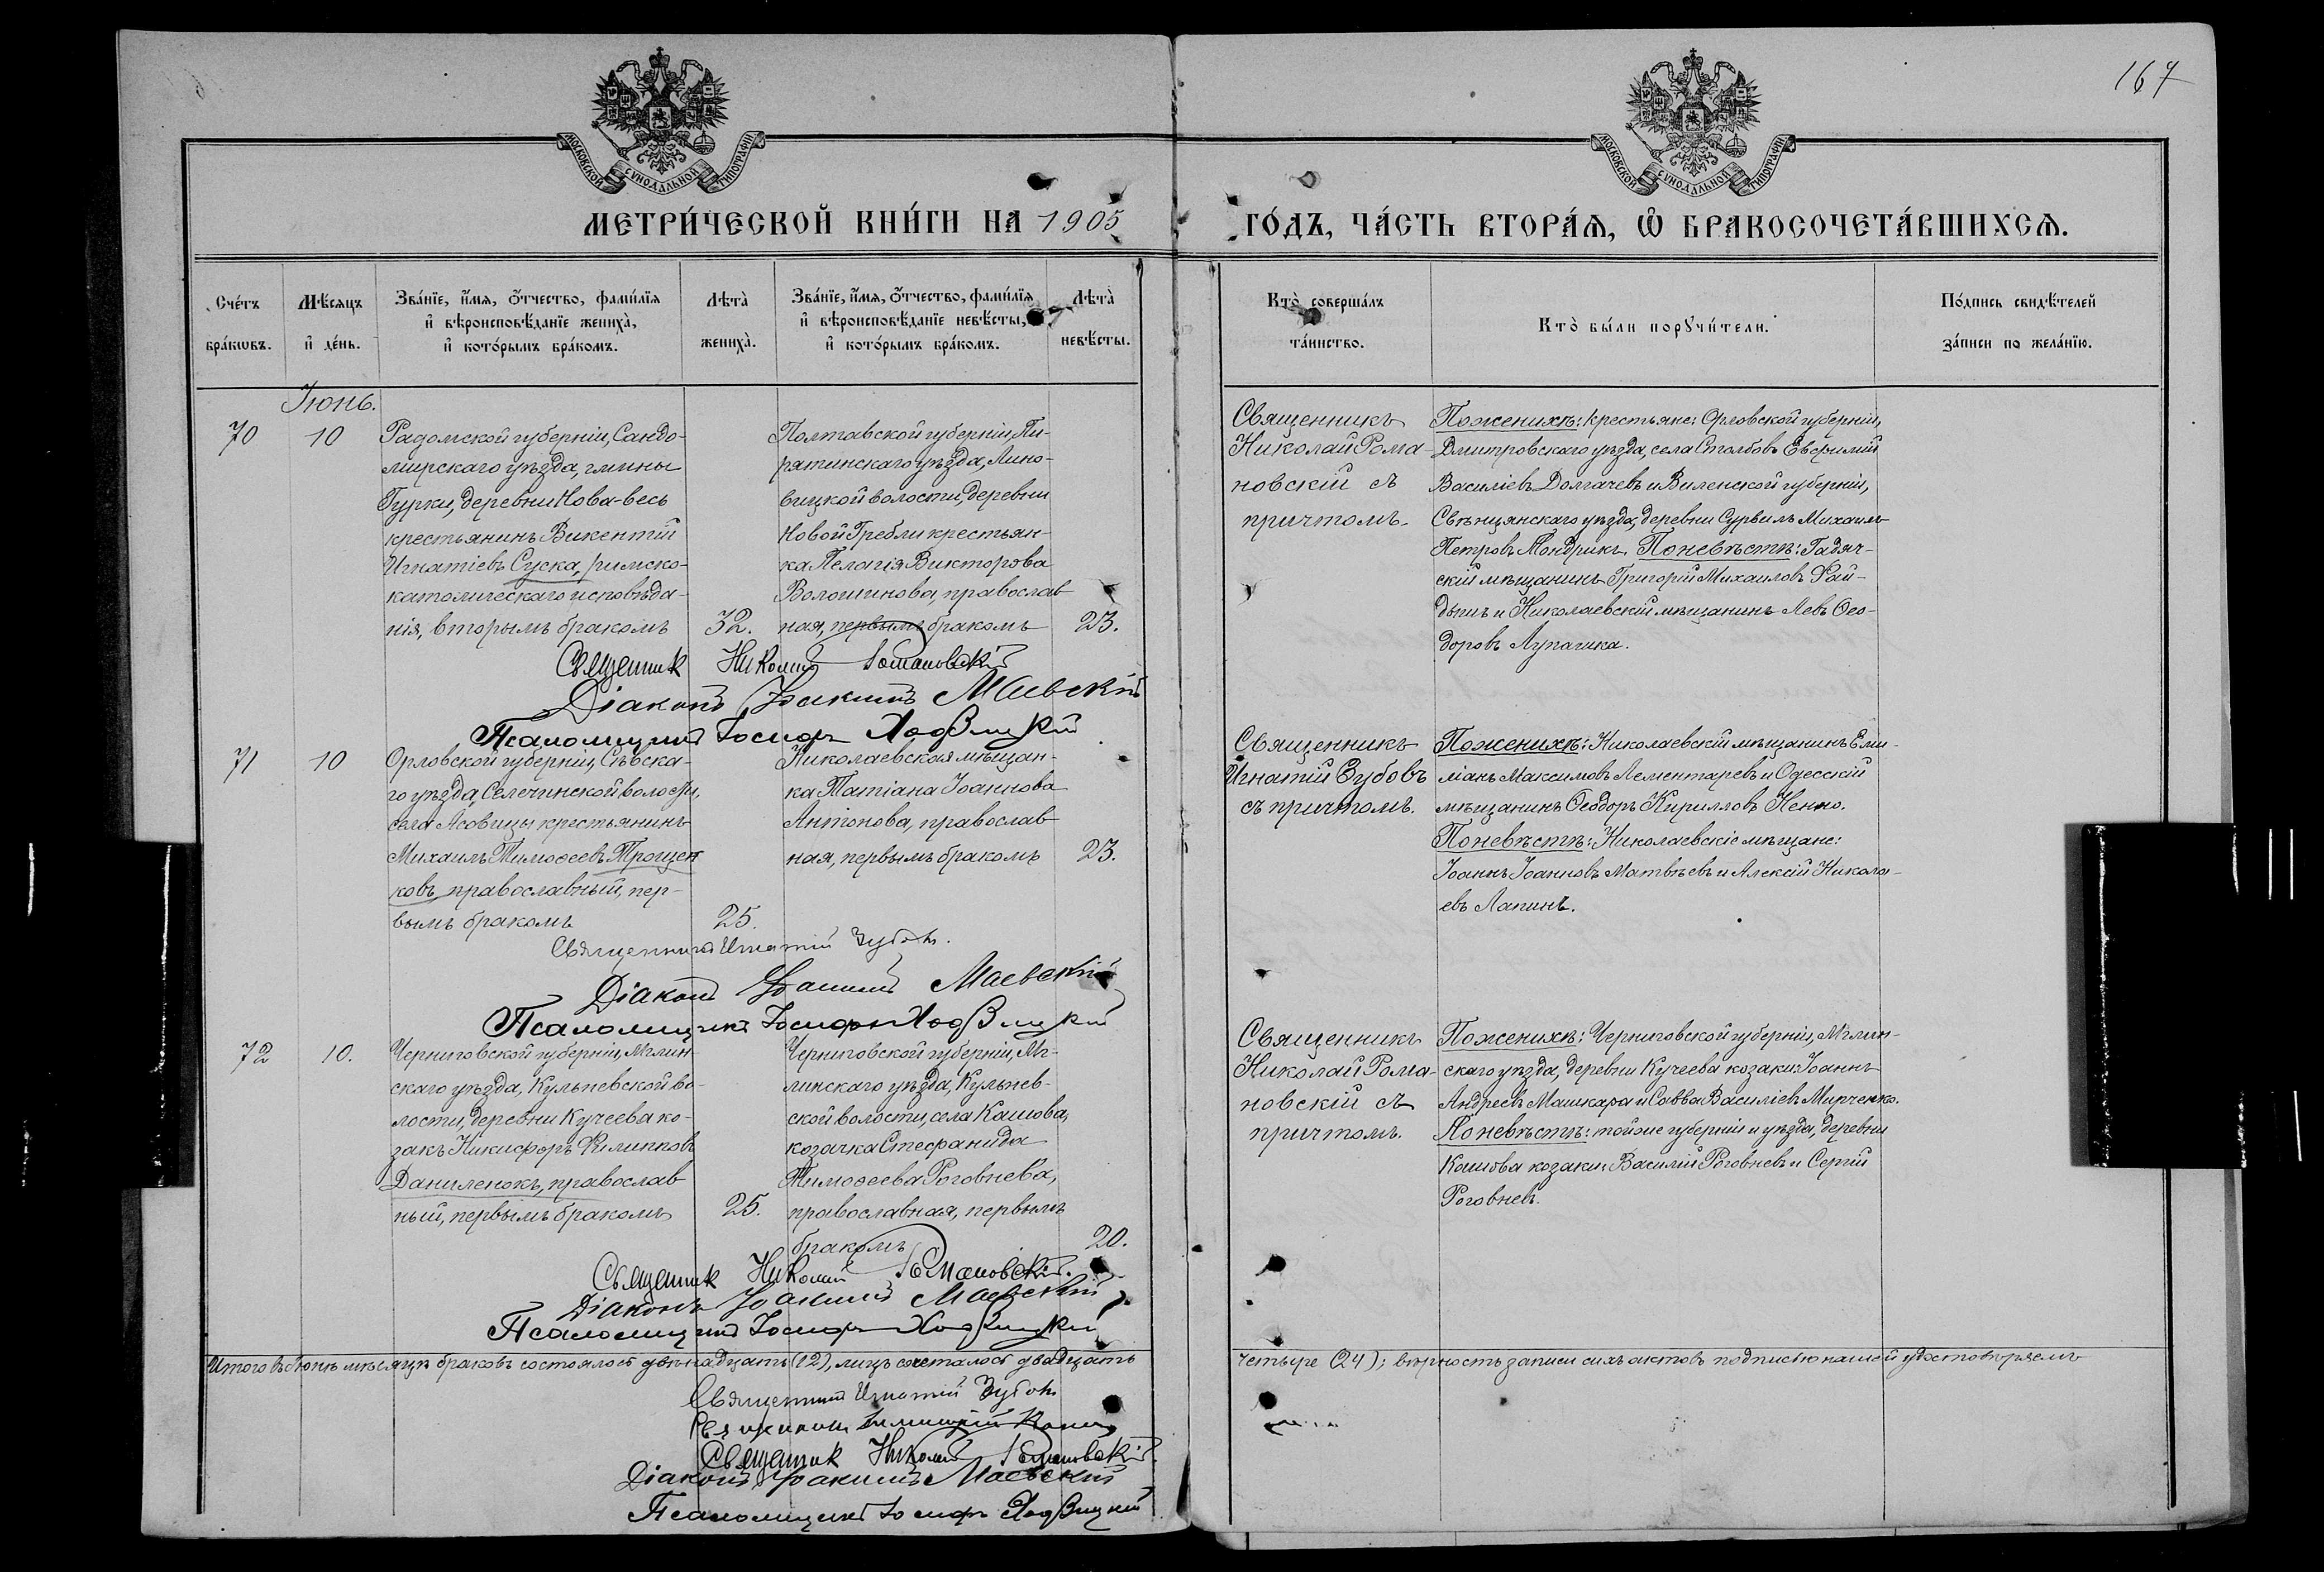 167
МОСКОВСКОЙ СѴНОДАЛЬНОЙ ТИПОГРАФІИ
МОСКОВСКОЙ СѴНОДАЛЬНОЙ ТИПОГРАФІИ
МЕТРИ́ЧЕСКОЙ КНИ́ГИ НА 1905 ГО́ДЪ, ЧА́СТЬ ВТОРА́Ѧ, Ѡ҆ БРАКОСОЧЕТА́ВШИХСѦ.
Сче́тъ бра́кѡвъ.
Мѣ́сѧцъ и҆ де́нь.
Зва́нїе, и҆́мѧ, ѻ҆́тчество, фамѝлїѧ
и҆ вѣроисповѣ́данїе жениха̀,
и҆ кото́рымъ бра́комъ.
Лѣта̀ жениха̀.
Зва́нїе, и҆́мѧ, ѻ҆́тчество, фамѝлїѧ
и҆ вѣроисповѣ́данїе невѣ́сты,
и҆ кото́рымъ бра́комъ.
Лѣта̀ невѣ́сты.
Кто̀ соверша́лъ та́инство.
Кто̀ бы́ли порꙋчи́тели.
По́дпись свидѣ́телей за́писи по жела́нїю.
Іюнь.
70
10
Радомской губерніи, Сандо-
мирскаго уѣзда, гмины
Гурки, деревни Нова-весь
крестьянинъ Викентій
Игнатіевъ Суска, римско-
католическаго исповѣда-
нія, вторымъ бракомъ
32.
Полтавской губерніи, Пи-
рятинскаго уѣзда, Лино-
вицкой волости, деревни
Новой Гребли крестьян-
ка Пелагія Викторова
Волошинова, православ
ная, первымъ бракомъ
23.
Священникъ
Николай Рома-
новскій съ
причтомъ.
По женихѣ: крестьяне: Орловской губерніи,
Дмитровскаго уѣзда, села Столбовъ Евѳимій
Василіевъ Долгачевъ и Виленской губерніи,
Свѣнцянскаго уѣзда, деревни Сурвилъ Михаилъ
Петровъ Мондрикъ. По невѣстѣ: Гадяч-
скій мѣщанинъ Григорій Михаиловъ Фай-
дышъ и Николаевскій мѣщанинъ Левъ Ѳео-
доровъ Лупачика.
Священник Николай Романовскій
Діаконъ Іоакимъ Маевскій
Псаломщикъ Іосифъ Ходзицкій
71
10
Орловской губерніи, Сѣвска-
го уѣзда, Селечинской волости,
села Асовицы крестьянинъ
Михаилъ Тимоѳеевъ Трощен
ковъ, православный, пер-
вымъ бракомъ
25.
Николаевская мѣщан-
ка Татіана Іоаннова
Антонова, православ
ная, первымъ бракомъ
23.
Священникъ
Игнатій Зубовъ
съ причтомъ.
По женихѣ: Николаевскій мѣщанинъ Еми-
ліанъ Максимовъ Лементаревъ и Одесскій
мѣщанинъ Ѳеодоръ Кирилловъ Ненно.
По невѣстѣ: Николаевскіе мѣщане:
Іоаннъ Іоанновъ Матвѣевъ и Алексій Никола-
евъ Лапинъ.
Священникъ Игнатій Зубовъ.
Діаконъ Іоакимъ Маевскій
Псаломщикъ Іосифъ Ходзицкій
72
10.
Черниговской губерніи, Мглин-
скаго уѣзда, Кульневской во-
лости, деревни Кучеева ко-
закъ Никифоръ Филипповъ
Даниленокъ, православ
ный, первымъ бракомъ
25.
Черниговской губерніи, Мг-
линскаго уѣзда, Кульнев-
ской волости, села Кашова,
козачка Стефанида
Тимоѳеева Роговнева,
православная, первымъ
бракомъ
20.
Священникъ
Николай Рома-
новскій съ
причтомъ.
По женихѣ: Черниговской губерніи, Мглин-
скаго уѣзда, деревни Кучеева козаки: Іоаннъ
Андреевъ Машкара и Савва Василіевъ Мирченко.
По невѣстѣ: той же губерніи и уѣзда, деревни
Кашова козаки: Василій Роговневъ и Сергій
Роговневъ.
Священник Николай Романовскій.
Діаконъ Іоакимъ Маевскій
Псаломщикъ Іосифъ Ходзицкій
Итого въ Іюнѣ мѣсяцѣ браковъ состоялось двѣнадцать (12), лицъ сочеталось двадцать четыре (24); вѣрность записи сихъ актовъ подписью нашей удостовѣряемъ
Священникъ Игнатій Зубовъ
Священникъ
Священник Николай Романовскій.
Діаконъ Іоакимъ Маевскій
Псаломщикъ Іосифъ Ходзицкій